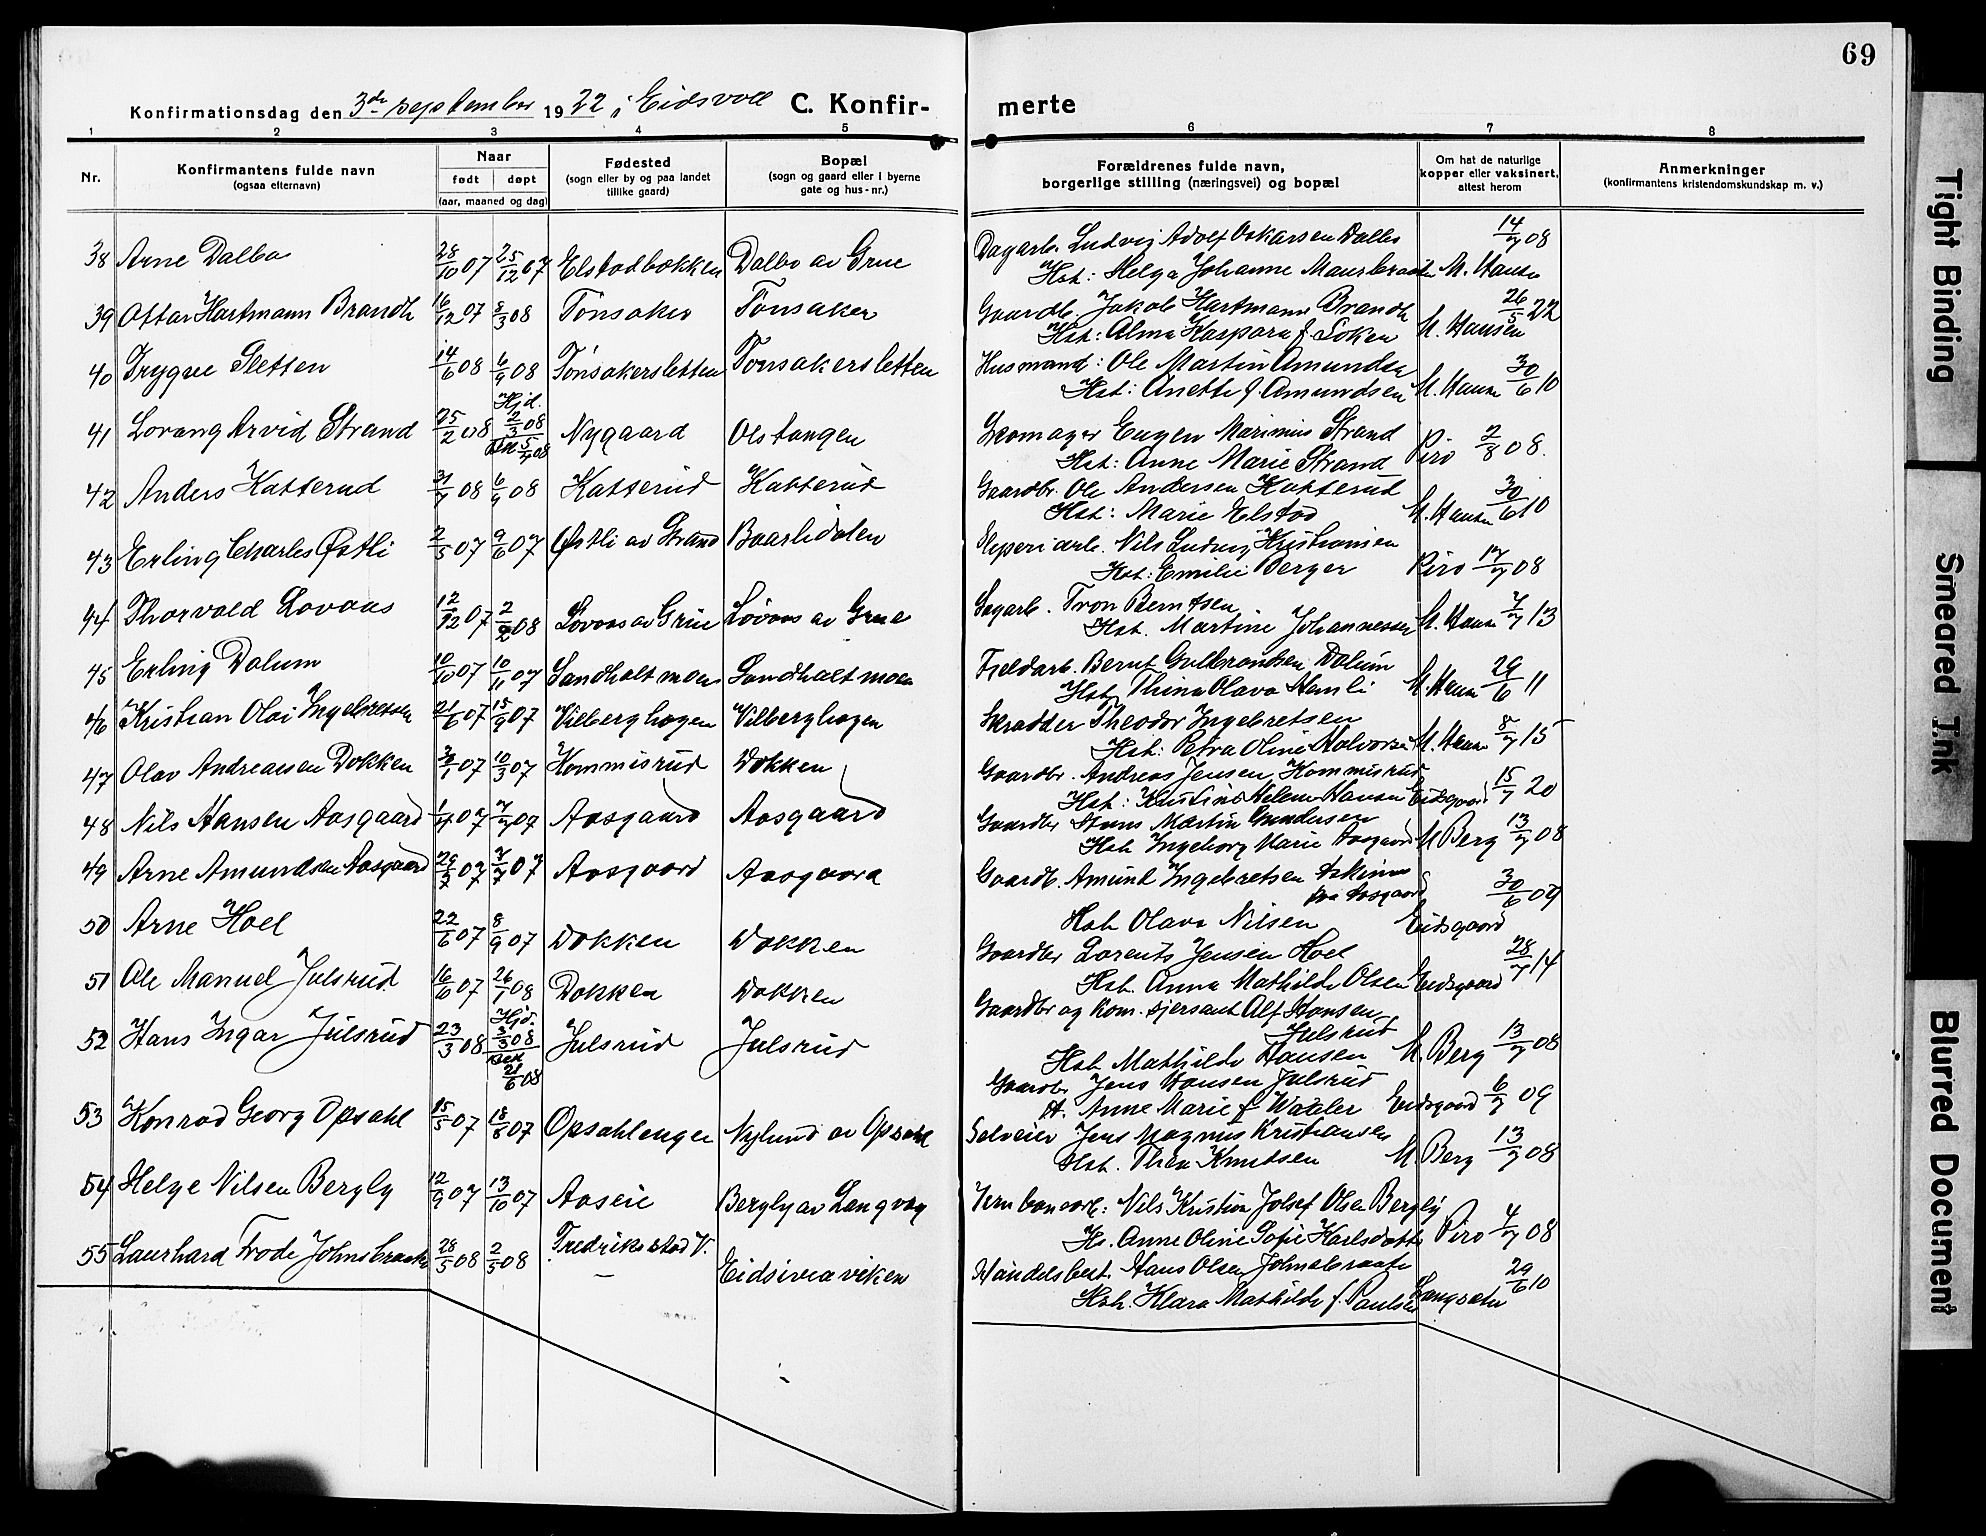 69
Konfirmationsdag den 3de september 1922 i Eidsvoll C. Konfir-
merte
1 2 3 4 5 6 7 8
Nr.
Konfirmantens fulde navn
(ogsaa efternavn)
Naar
født døpt
(aar, maaned og dag)
Fødested
(sogn eller by og paa landet
tillike gaard)
Bopæl
(sogn og gaard eller i byerne
gate og hus-nr.)
Forældrenes fulde navn,
borgerlige stilling (næringsvei) og bopæl
Om hat de naturlige
kopper eller vaksinert,
attest herom
Anmerkninger
(konfirmantens kristendomskundskap m. v.)
38 Arne Dalbo 28/10 07 25/12 07 Elstadbakken Dalbo av Grue
Dagarb. Ludvig Adolf Oskarsen Dalbo 14/7 08
Hst: Helga Johanne Maurbraaten M. Hansen
39 Ottar Hartmann Brandt 16/12 07 8/3 08 Tønsaker Tønsaker
Gaardb. Jakob Hartmann Brandt 26/5 22
Hst: Alma Kaspara f. Soken M. Hansen
40 Trygve Sletten 14/6 08 6/9 08 Tønsakersletten Tønsakersletten
Husmand: Ole Martin Amundsen 30/6 10
Hst: Anette f. Amundsen M. Hansen
41 Lorang Arvid Strand 25/2 08 Hjd. 2/3 08 Nygaard Olstangen
Skomager Eugen Marinius Strand
Hst: Anne Marie Strand Piro 2/8 08.
42 Anders Katterud 08 08 Katterud Katterud
Gaardbr. Ole Andersen Katterud 30/6 10
Hst: Marie Elstad M. Hansen
43 Erling Charles Østli 2/5 07 9/6 07 Østli av Strand Baarlidalen
Nils Ludvig Kristiansen
Hst: Emilie Berger Piro 17/7 08
44 Thorvald Lovaas 12/12 07 2/2 08 Lovaas av Grue Løvaas av Grue
Sagarb. Tron Berntsen
Hst. Martine Johannessen M. Hansen 7/7 13
45 Erling Dalum 10/10 07 10/11 07 Sandholtmoen Sandholtmoen
Fjeldarb. Bernt Gulbrandsen Dalum 29/6 11
Hst. Thina Olava Hamli M. Hansen
46 Kristian Olai Ingebretsen 21/6 07 15/9 07 Vilberghagen Vilberghagen
Skradder Theodor Ingebretsen
Hst: Petra Oline Halvorsen M. Hansen 8/7 15
47 Olav Andreassen Dokken 07 10/3 07 Kommisrud Dokken
Gaardbr. Andreas Jensen Kommisrud 15/7 20
Hst: Kristine Helene Hansen Eidsgaard
48 Nils Hansen Aasgaard 1/4 07 7/7 07 Aasgaard Aasgaard
Gaardbr Hans Martin Gundersen
Hst Ingeborg Marie Aasgaard M Berg 13/7 08
49 Arne Amundsen Aasgaard 07 7/7 07 Aasgaard Aasgaard
Gaardb. Amund Ingebretsen 30/6 09
Hst Olava Nilsen Eidsgaard
50 Arne Hoel 22/6 07 8/9 07 Dokken Dokken
Gaardbr Lorents Jensen Hoel 28/7 14
Hst. Anna Mathilde Olsen Eidsgaard
51 Ole Manuel Julsrud 16/6 07 26/1 08 Dokken Dokken
Gaardbr og kom. sjersant Alf Hansen
Julsrud 13/7 08
Hst Mathilde Hansen M. Berg
52 Hans Ingar Julsrud 23/3 08 Hjd. 08 21/6 08 Julsrud Julsrud
Gaardbr Jens Hansen Julsrud
H. Anne Marie f Watler Eidsgaard 6/7 09
53 Konrad Georg Opsahl 15/5 07 18/8 07 Opsahlenger Nylund av Opsahl
Selveier Jens Magnus Kristiansen
Hst. Thea Knudsen M. Berg 13/7 08
54 Helge Nilsen Bergly 12/9 07 13/10 07 Aaseie Bergly av Langvag
Jernbanearb: Nils Kristian Jolsef Olsen Bergly
Hs. Anne Oline Sofie Karlsdatter Piro 4/7 08
55 Laurhard Frode Johnsbraaten 28/5 08 2/5 08 Fredrikstad V. Eidsivaviken
Handelsbest. Hans Olsen Johnsbraaten 29/6 10
Hst. Klara Mathilde f. Paulsen Langseter
Tight Binding
Smeared Ink
Blurred Document